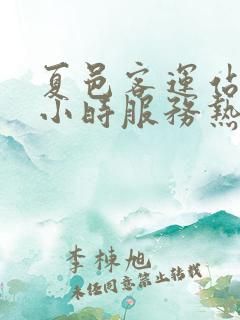 夏邑客運站
小時服務熱
李棟旭
未经同意禁止转载